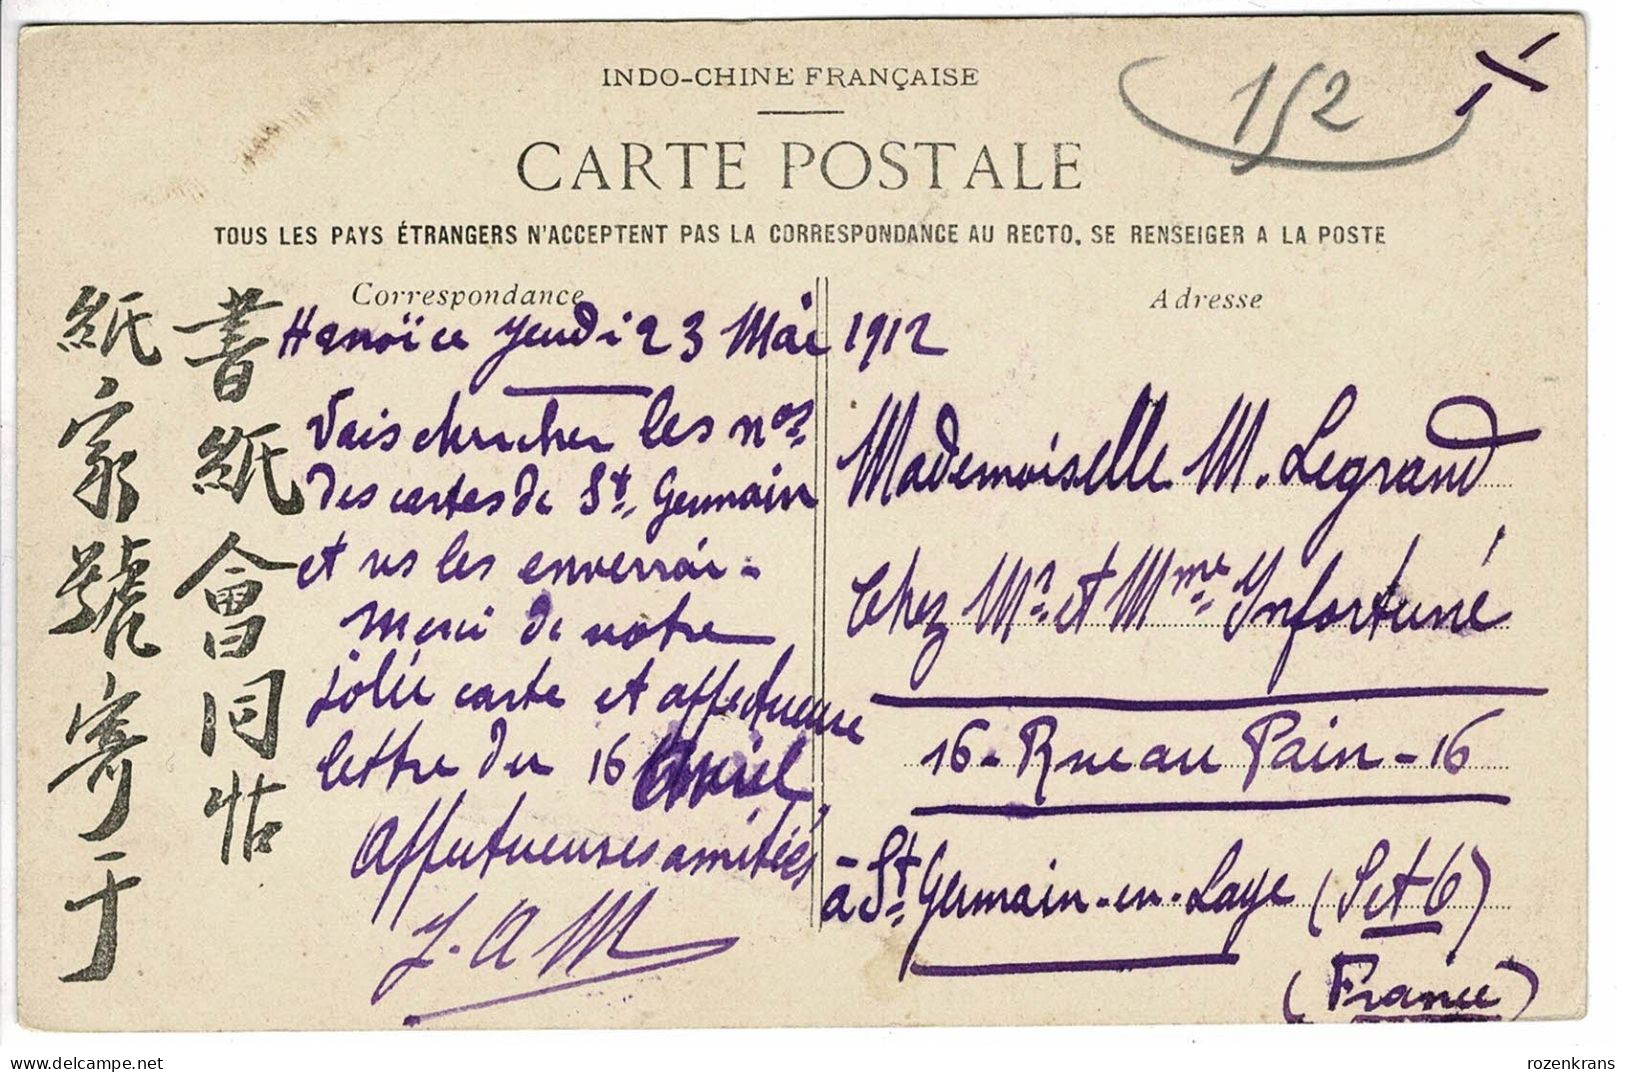 INDO-CHINE FRANÇAISE
152
CARTE POSTALE
TOUS LES PAYS ÉTRANGERS N'ACCEPTENT PAS LA CORRESPONDANCE AU RECTO, SE RENSEIGER A LA POSTE
Correspondance
Adresse
書紙會同帖
紙家號寄于
Hanoï ce Jeudi 23 Mai 1912
Vais chercher les nos
des cartes de St. Germain
et vs les enverrai -
Merci de votre
jolie carte et affectueuse
lettre du 16 Avril,
Affectueuses amitiés
J. A M
Mademoiselle M. Legrand
Chez Mr. et Mme. Infortuné
16 - Rue au Pain - 16
à St. Germain-en-Laye (S et O)
(France)
rozenkrans